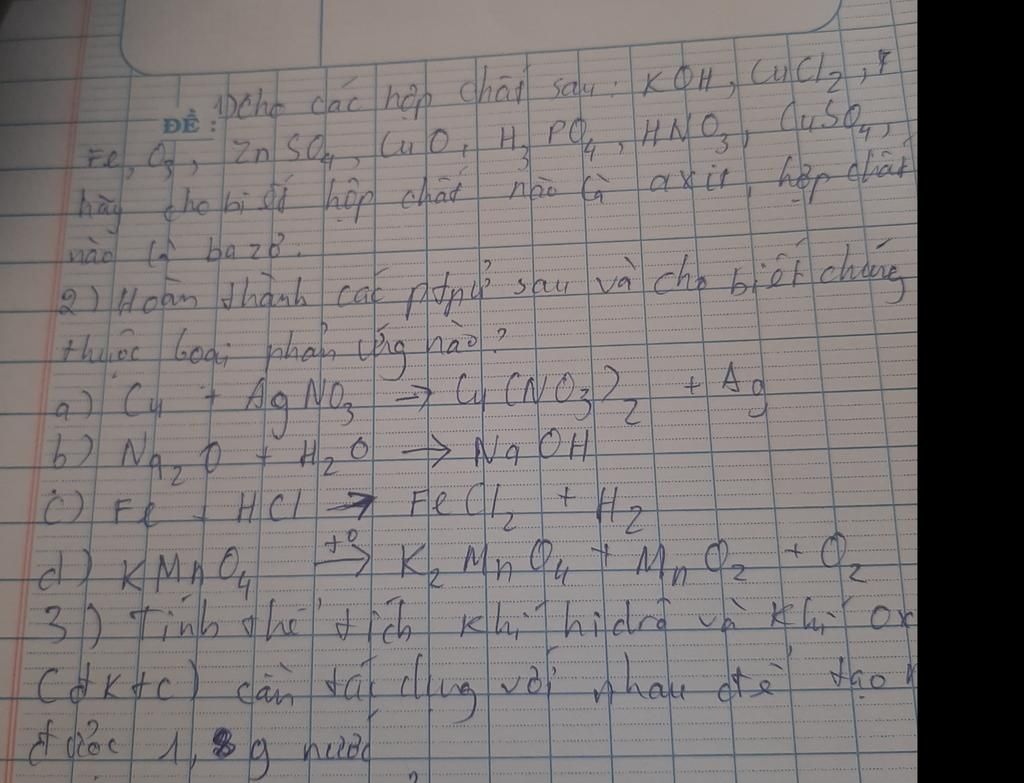 1) cho các hợp chất sau: KOH, CuCl2,
ĐỀ:
Fe2O3, ZnSO4, CuO, H3PO4, HNO3, CuSO4,
hãy cho biết hợp chất nào là axit, hợp chất
nào là bazơ.
2) Hoàn thành các ptpứ sau và cho biết chúng
thuộc loại phản ứng nào?
a) Cu + AgNO3 → Cu(NO3)2 + Ag
b) Na2O + H2O → NaOH
c) Fe + HCl → FeCl2 + H2
d) KMnO4 →(t°) K2MnO4 + MnO2 + O2
3) Tính thể tích khí hiđrô và khí ox
(đktc) cần tác dụng với nhau để tạo
được 1,8g nước